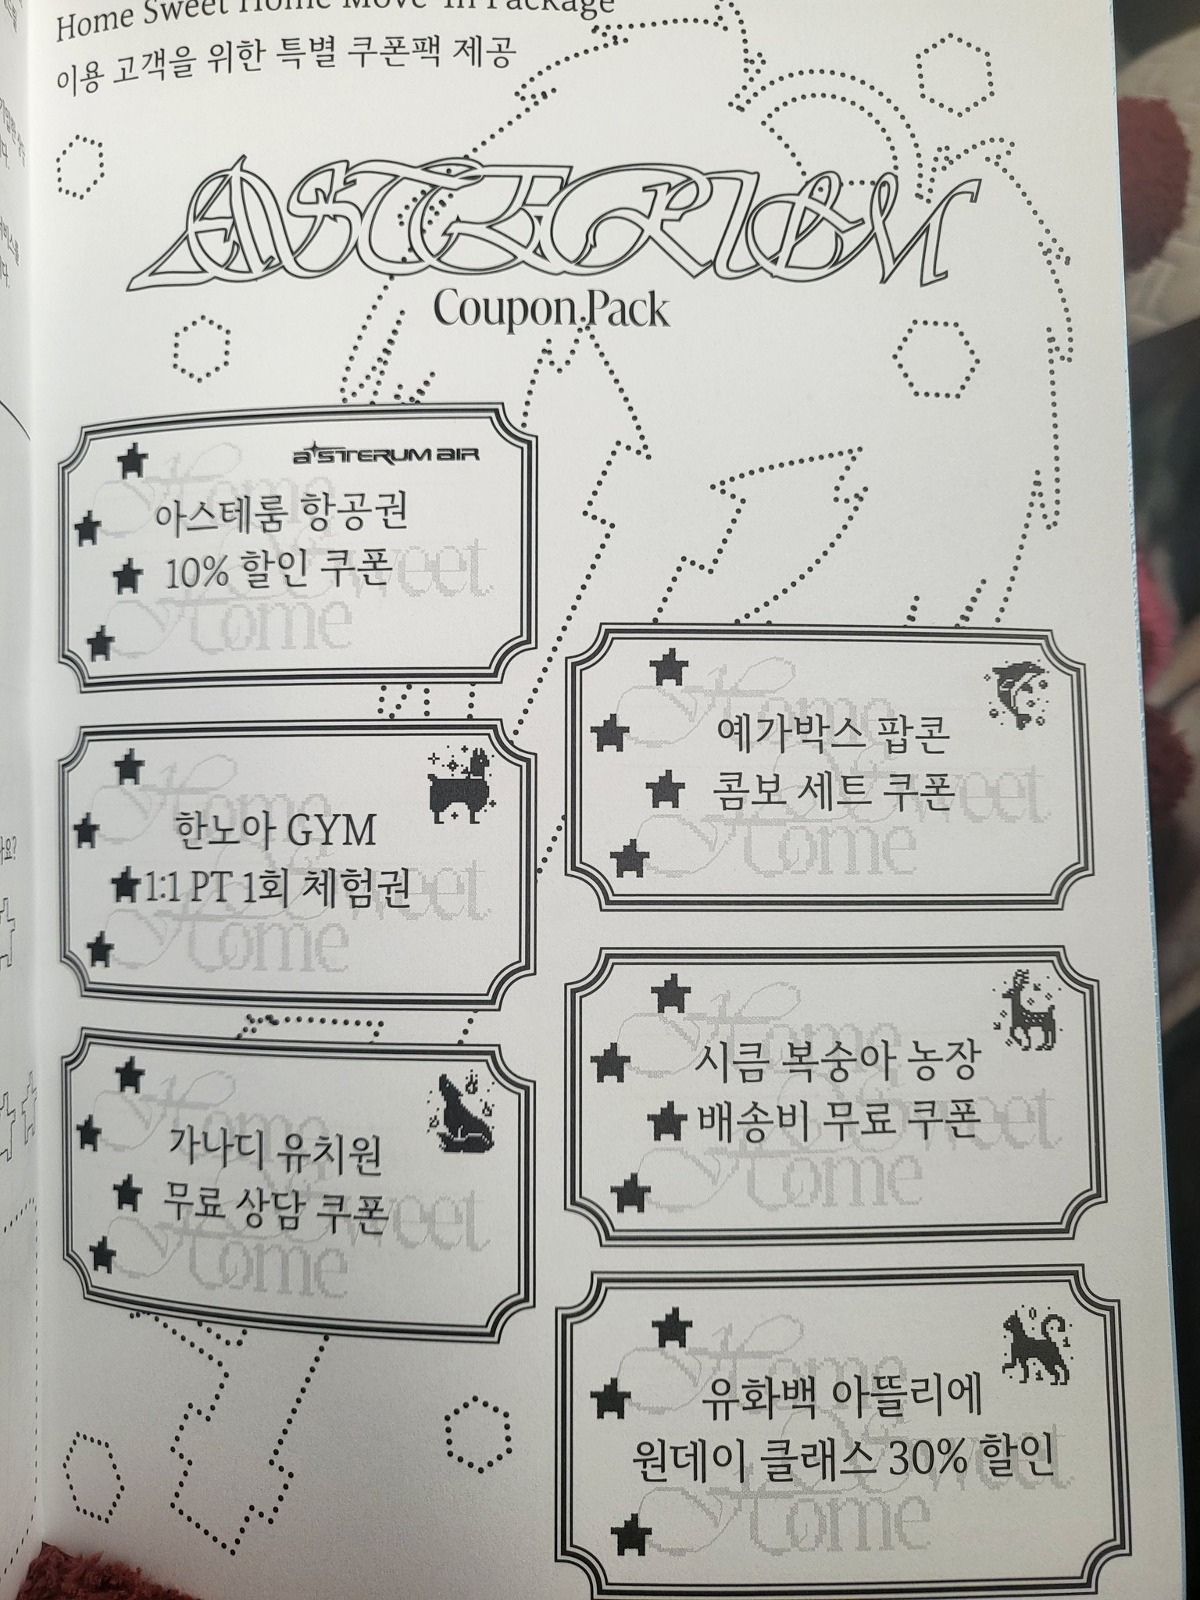 Home Sweet Home Move-in Package
이용 고객을 위한 특별 쿠폰팩 제공
ASTERISM
Coupon Pack
asterum air
아스테룸 항공권
10% 할인 쿠폰
Home Sweet Home
한노아 GYM
1:1 PT 1회 체험권
Home Sweet Home
가나디 유치원
무료 상담 쿠폰
Home Sweet Home
예가박스 팝콘
콤보 세트 쿠폰
Home Sweet Home
시큼 복숭아 농장
배송비 무료 쿠폰
Home Sweet Home
유화백 아뜰리에
원데이 클래스 30% 할인
Home Sweet Home